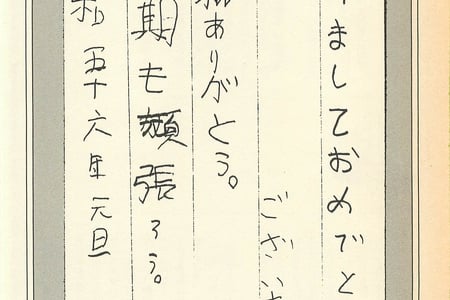 ましておめでと
ござい
ありがとう。
期も頑張ろう。
和五十六年元旦